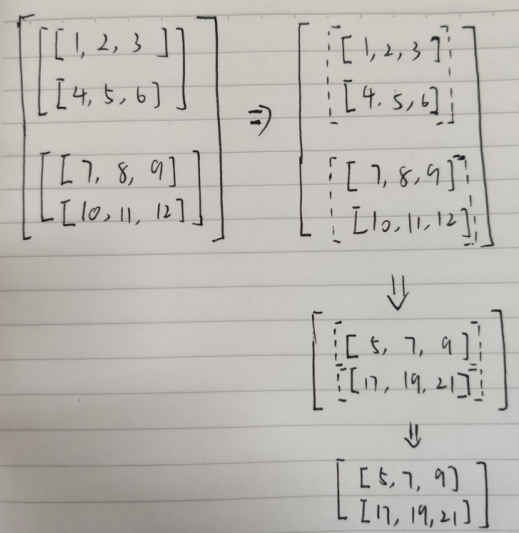 [[[1, 2, 3] ⇒ [[1, 2, 3]
[4, 5, 6]] [4. 5, 6]]
[[7, 8, 9] [[7, 8, 9]
[10, 11, 12]]] [10, 11, 12]]]
⇓
[[5, 7, 9]
[17, 19, 21]]
⇓
[[5, 7, 9]
[17, 19, 21]]